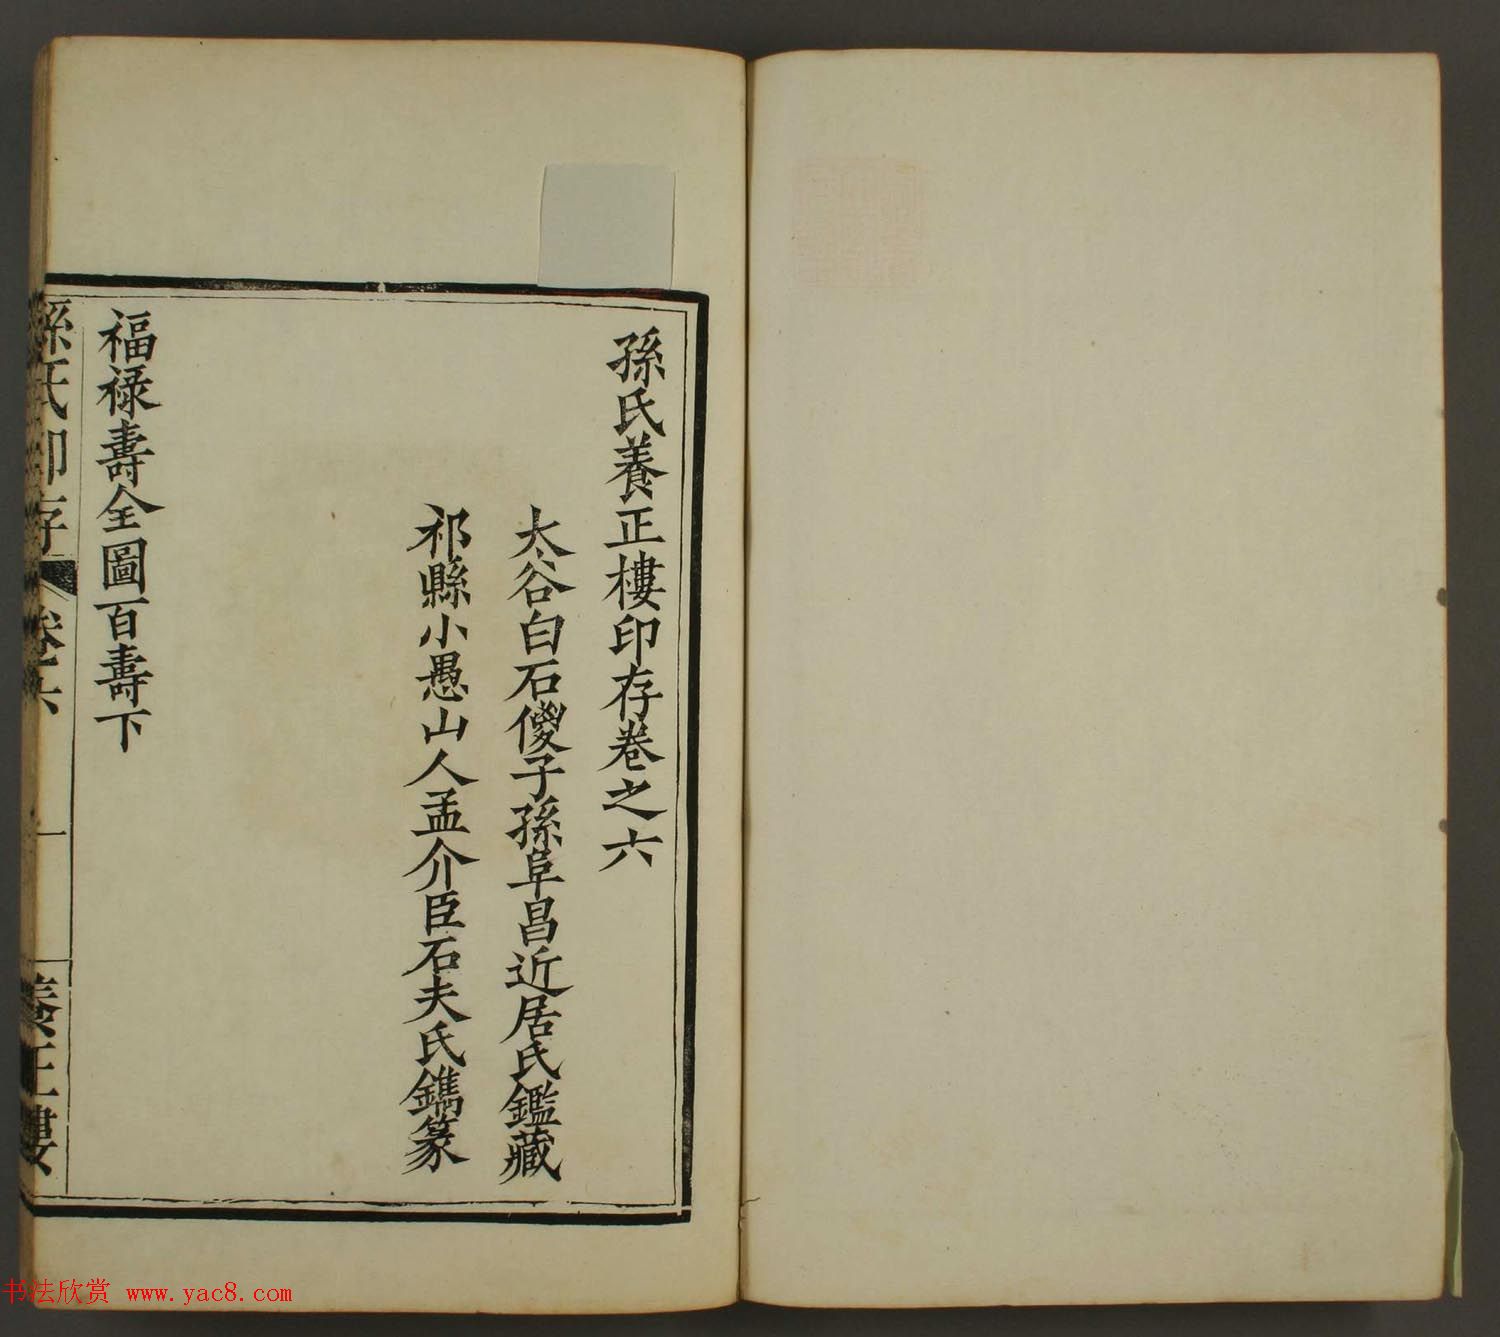 孫氏養正樓印存卷之六
太谷白石儍子孫阜昌近居氏鑑藏
祁縣小愚山人孟介臣石夫氏鐫篆
福祿壽全圖百壽下
孫氏印存 卷六 一 養正樓
书法欣赏 www.yac8.com